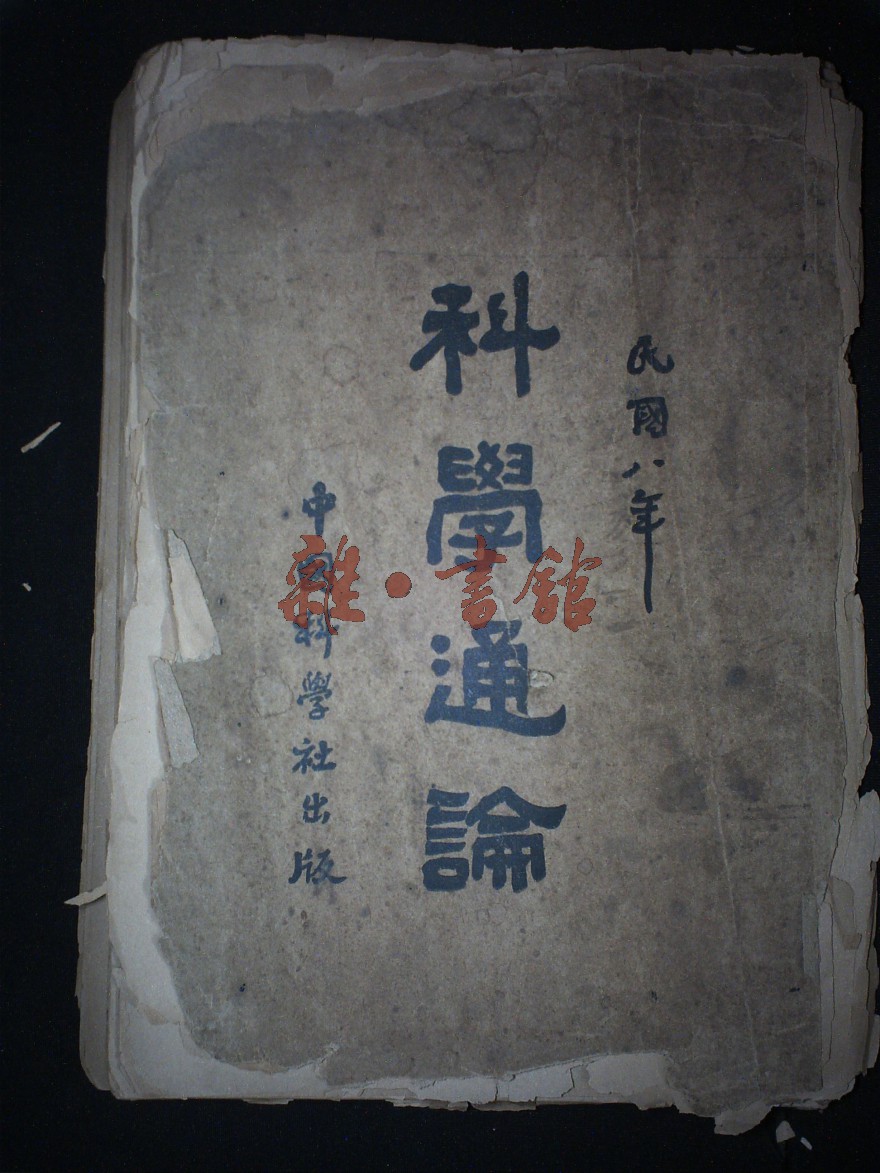 民國八年
科學通論
中國科學社出版
雜·書館